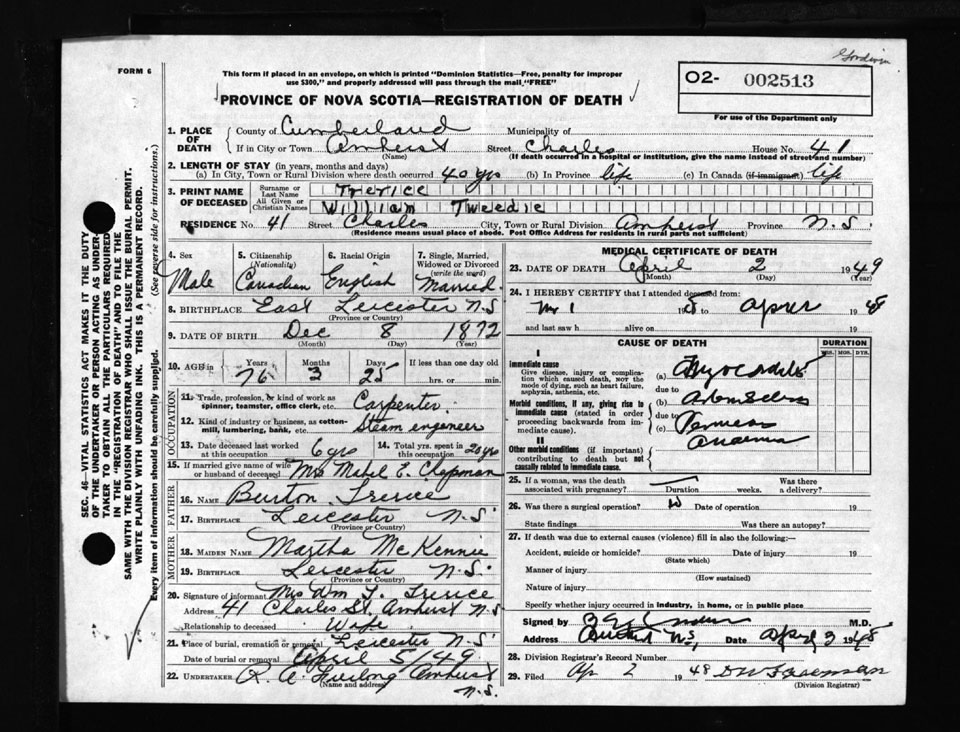 Goodwin
FORM 6
This form if placed in an envelope, on which is printed "Dominion Statistics—Free, penalty for improper
use $300," and properly addressed will pass through the mail "FREE"
O2- 002513
For use of the Department only
PROVINCE OF NOVA SCOTIA—REGISTRATION OF DEATH
1. PLACE OF DEATH { County of Cumberland Municipality of
If in City or Town Amherst Street Charles House No. 41
(Name) (If death occurred in a hospital or institution, give the name instead of street and number)
2. LENGTH OF STAY (in years, months and days)
(a) In City, Town or Rural Division where death occurred 40 yrs (b) In Province life (c) In Canada (if immigrant) life
3. PRINT NAME OF DECEASED { Surname or Last Name Trerice
All Given or Christian Names William Tweedie
RESIDENCE No. 41 Street Charles City, Town or Rural Division Amherst Province N.S.
(Residence means usual place of abode. Post Office Address for residents in rural parts not sufficient)
4. Sex Male
5. Citizenship (Nationality) Canadian
6. Racial Origin English
7. Single, Married, Widowed or Divorced (write the word) Married
8. BIRTHPLACE East Leicester N.S.
(Province or Country)
9. DATE OF BIRTH Dec 8 1872
(Month) (Day) (Year)
10. AGE in { Years 76 Months 3 Days 25 If less than one day old
hrs. or min.
OCCUPATION
11. Trade, profession, or kind of work as spinner, teamster, office clerk, etc. Carpenter
12. Kind of industry or business, as cotton-mill, lumbering, bank, etc. Steam engeneer
13. Date deceased last worked at this occupation 6 yrs
14. Total yrs. spent in this occupation 20 yrs
15. If married give name of wife or husband of deceased Mrs Mabel E. Chapman
FATHER
16. NAME Burton Trerice
17. BIRTHPLACE Leicester N.S.
(Province or Country)
MOTHER
18. MAIDEN NAME Martha McKennie
19. BIRTHPLACE Leicester N.S.
(Province or Country)
20. Signature of informant Mrs Wm T. Trerice
Address 41 Charles St. Amherst N.S.
Relationship to deceased Wife
21. Place of burial, cremation or removal Leicester N.S.
Date of burial or removal April 5/49
22. UNDERTAKER R. A. Furlong Amherst
(Name and address) N.S.
MEDICAL CERTIFICATE OF DEATH
23. DATE OF DEATH April 2 1949
(Month) (Day)
24. I HEREBY CERTIFY that I attended deceased from:
and last saw h alive on 19
CAUSE OF DEATH
DURATION
YRS. MOS. DYS.
I
Immediate cause
Give disease, injury or complication which caused death, not the mode of dying, such as heart failure, asphyxia, asthenia, etc.
(a) Myocarditis
due to
Morbid conditions, if any, giving rise to immediate cause (stated in order proceeding backwards from immediate cause).
(b)
due to
(c) Pernicus
Anaemia
II
Other morbid conditions (if important) contributing to death but not causally related to immediate cause.
25. If a woman, was the death associated with pregnancy? Duration weeks. Was there a delivery?
26. Was there a surgical operation? Date of operation 19
State findings Was there an autopsy?
27. If death was due to external causes (violence) fill in also the following:—
Accident, suicide or homicide? Date of injury 19
(State which)
Manner of injury
(How sustained)
Nature of injury
Specify whether injury occurred in industry, in home, or in public place
Signed by M.D.
Address Amherst N.S. Date April 3 1948
28. Division Registrar's Record Number
29. Filed Ap 2 1948
(Division Registrar)
SEC. 46—VITAL STATISTICS ACT MAKES IT THE DUTY
OF THE UNDERTAKER OR PERSON ACTING AS UNDERTAKER TO OBTAIN ALL THE PARTICULARS REQUIRED
IN THE "REGISTRATION OF DEATH" AND TO FILE THE
SAME WITH THE DIVISION REGISTRAR WHO SHALL ISSUE THE BURIAL PERMIT.
WRITE PLAINLY WITH UNFADING INK. THIS IS A PERMANENT RECORD.
Every item of information should be carefully supplied. (See reverse side for instructions.)